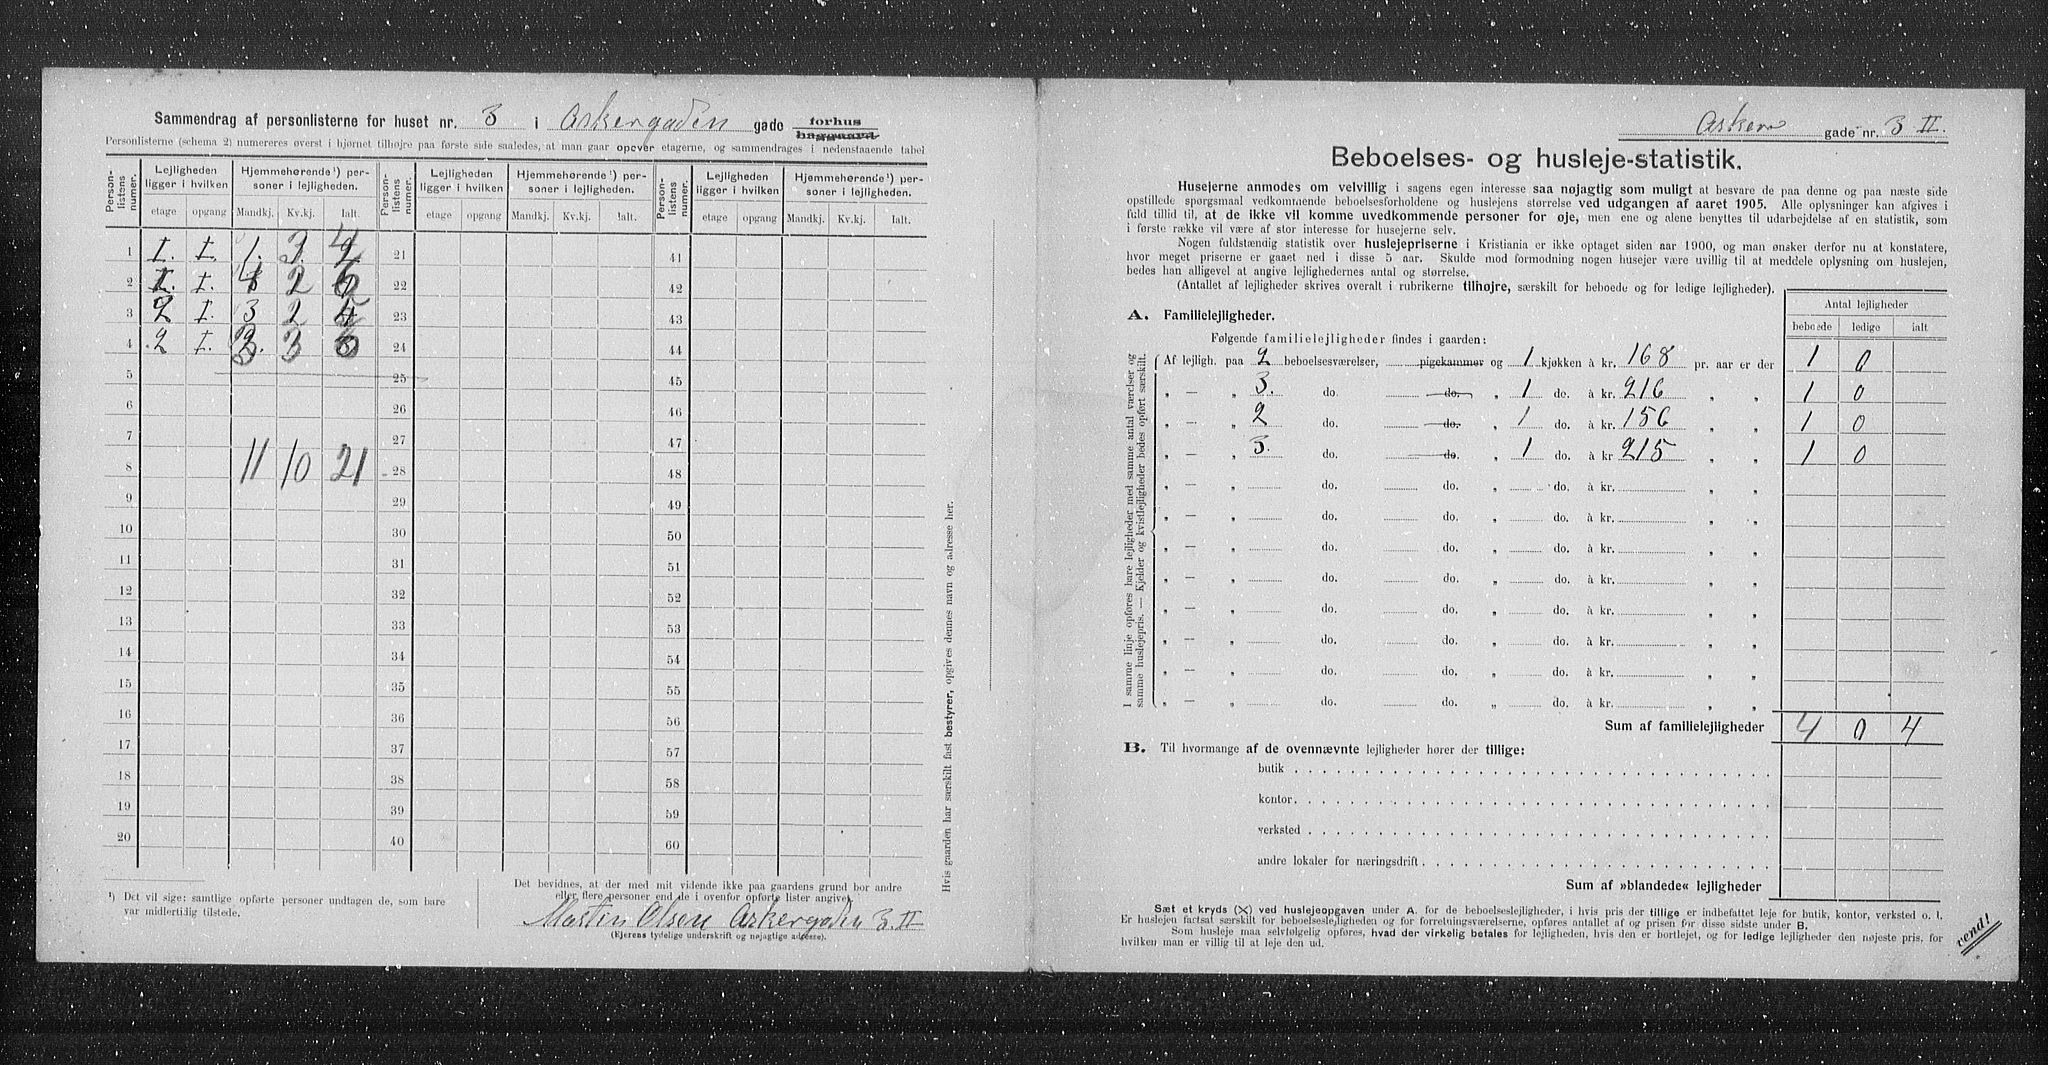 Sammendrag af personlisterne for huset nr. 3 i Askergaden gade forhus baggaard
Personlisterne (schema 2) numereres øverst i hjørnet tilhøjre paa første side saaledes, at man gaar opover etagerne, og sammendrages i nedenstaaende tabel
Person-listens numer. Lejligheden ligger i hvilken Hjemmehørende¹) personer i lejligheden. Person-listens numer. Lejligheden ligger i hvilken Hjemmehørende¹) personer i lejligheden. Person-listens numer. Lejligheden ligger i hvilken Hjemmehørende¹) personer i lejligheden.
etage opgang Mandkj. Kv.kj. Ialt. etage opgang Mandkj. Kv.kj. Ialt. etage opgang Mandkj. Kv.kj. Ialt.
1 I. I. 1. 3 4 21 41
2 1. I. 4 2 6 22 42
3 2 I. 3 2 5 23 43
4 2 I. 3 3 6 24 44
5 25 45
6 26 46
7 27 47
8 11 10 21 28 48
9 29 49
10 30 50
11 31 51
12 32 52
13 33 53
14 34 54
15 35 55
16 36 56
17 37 57
18 38 58
19 39 59
20 40 60
¹) Det vil sige: samtlige opførte personer undtagen de, som bare
var midlertidig tilstede.
Det bevidnes, at der med mit vidende ikke paa gaardens grund bor andre
eller flere personer end de i ovenfor opførte lister angivet.
Martin Olsen Askergaden 3 II
(Ejerens tydelige underskrift og nøjagtige adresse).
Hvis gaarden har særskilt fast bestyrer, opgives dennes navn og adresse her.
Asker gade nr. 3 II.
Beboelses- og husleje-statistik.
Husejerne anmodes om velvillig i sagens egen interesse saa nøjagtig som muligt at besvare de paa denne og paa næste side
opstillede spørgsmaal vedkommende beboelsesforholdene og huslejens størrelse ved udgangen af aaret 1905. Alle oplysninger kan afgives i
fuld tillid til, at de ikke vil komme uvedkommende personer for øje, men ene og alene benyttes til udarbejdelse af en statistik, som
i første række vil være af stor interesse for husejerne selv.
Nogen fuldstændig statistik over huslejepriserne i Kristiania er ikke optaget siden aar 1900, og man ønsker derfor nu at konstatere,
hvor meget priserne er gaaet ned i disse 5 aar. Skulde mod formodning nogen husejer være uvillig til at meddele oplysning om huslejen,
bedes han alligevel at angive lejlighedernes antal og størrelse.
(Antallet af lejligheder skrives overalt i rubrikerne tilhøjre, særskilt for beboede og for ledige lejligheder).
Antal lejligheder
beboede ledige ialt
A. Familielejligheder.
Følgende familielejligheder findes i gaarden:
I samme linje opføres bare lejligheder med samme antal værelser og
samme huslejepris. — Kjelder og kvistlejligheder bedes opført særskilt.
Af lejligh. paa 2 beboelsesværelser, pigekammer og 1 kjøkken à kr. 168 pr. aar er der 1 0
„ — „ 3. do. do. „ 1 do. à kr. 216 „ „ 1 0
„ — „ 2 do. do. „ 1 do. à kr. 156 „ „ 1 0
„ — „ 3. do. do. „ 1 do. à kr 215 „ „ 1 0
„ — „ do. do. „ do. à kr. „ „
„ — „ do. do. „ do. à kr. „ „
„ — „ do. do. „ do. à kr. „ „
„ — „ do. do. „ do. à kr. „ „
„ — „ do. do. „ do. à kr. „ „
„ — „ do. do. „ do. à kr. „ „
„ — „ do. do. „ do. à kr. „ „
„ — „ do. do. „ do. à kr. „ „
Sum af familielejligheder 4 0 4
B. Til hvormange af de ovennævnte lejligheder hører der tillige:
butik
kontor.
verksted
andre lokaler for næringsdrift
Sum af »blandede« lejligheder
Sæt et kryds (X) ved huslejeopgaven under A. for de beboelseslejligheder, i hvis pris der tillige er indbefattet leje for butik, kontor, verksted o. l.
Er huslejen factsat særskilt for beboelseslejligheden og for forretningsværelserne, opføres antallet af og prisen for disse sidste under B.
Som husleje maa selvfølgelig opføres, hvad der virkelig betales for lejligheden, hvis den er bortlejet, og for ledige lejligheder den nøjeste pris, for
hvilken man er villig til at leje den ud.
vend!